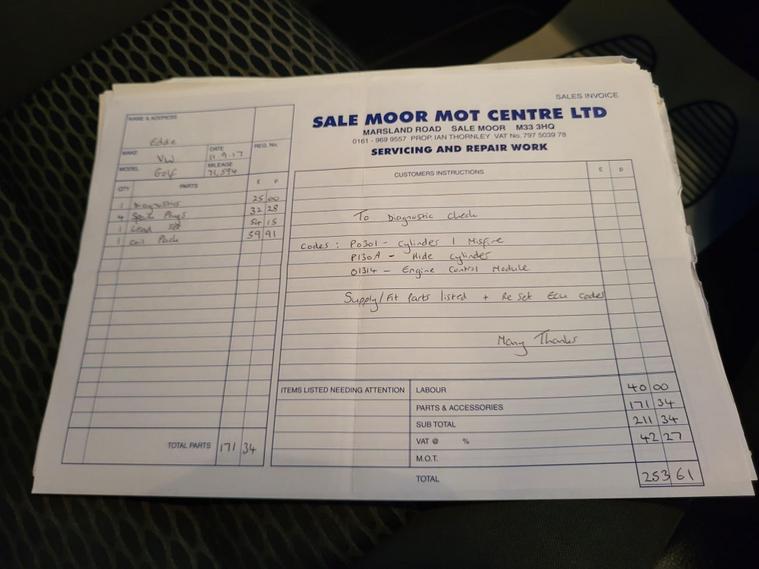 SALES INVOICE
SALE MOOR MOT CENTRE LTD
MARSLAND ROAD SALE MOOR M33 3HQ
0161 - 969 9557 PROP. IAN THORNLEY VAT No. 797 5039 78
SERVICING AND REPAIR WORK
NAME & ADDRESS
Eddie
MAKE VW DATE 11.9.17 REG. No.
MODEL Golf MILEAGE 71,594
QTY PARTS £ P
1 Diagnostics 25 00
4 Spark Plugs 32 28
1 Lead Set 54 15
1 Coil Pack 59 91
TOTAL PARTS 171 34
CUSTOMERS INSTRUCTIONS £ P
To Diagnostic Check
Codes : P0301 - Cylinder 1 Misfire
P130A - Hide Cylinder
01314 - Engine Control Module
Supply/Fit Parts listed + Re Set Ecu Codes
Many Thanks
ITEMS LISTED NEEDING ATTENTION
LABOUR 40 00
PARTS & ACCESSORIES 171 34
SUB TOTAL 211 34
VAT @ % 42 27
M.O.T.
TOTAL 253 61